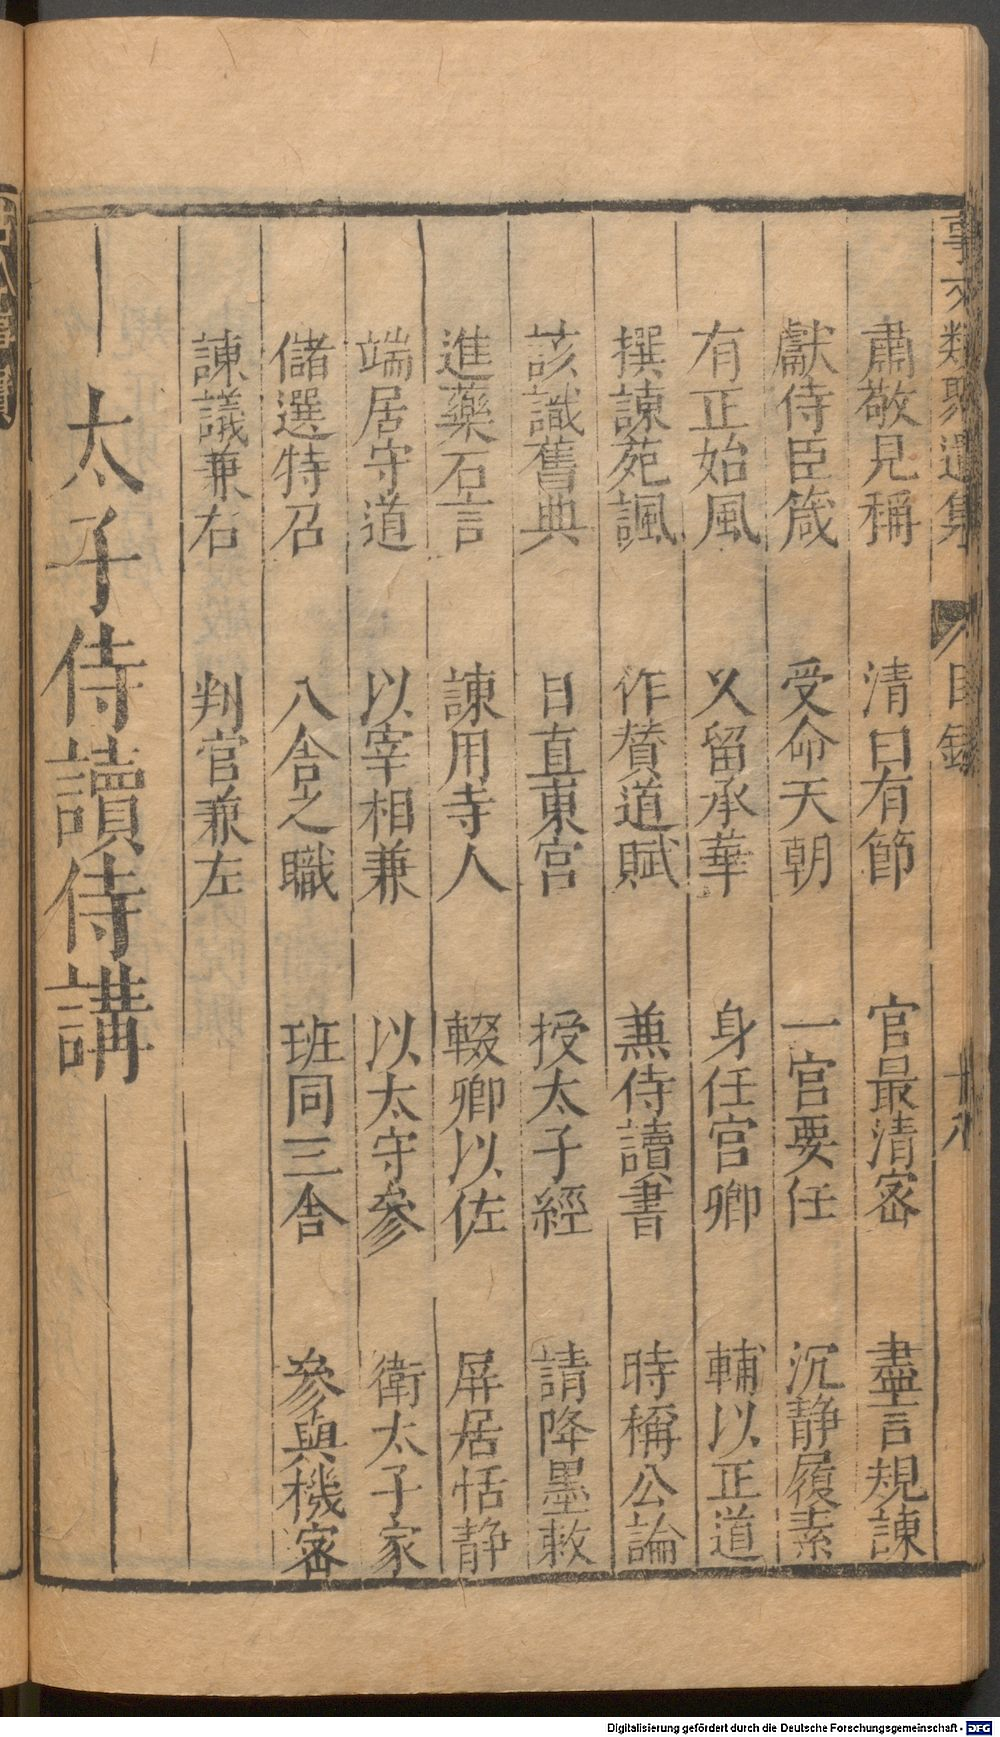 事文類聚遺集 目錄 十八
肅敬見稱 清曰有節 官最清宻 盡言規諫
獻侍臣箴 受命天朝 一宫要任 沉静履素
有正始風 乂留承華 身任宫卿 輔以正道
撰諫苑諷 作賛道賦 兼侍讀書 時稱公論
該識舊典 日直東宫 授太子經 請降墨敕
進藥石言 諫用寺人 輟卿以佐 屏居恬静
端居守道 以宰相兼 以太守參 衛太子家
儲選特召 八舍之職 班同三舍 參與機宻
諫議兼右 判官兼左
太子侍讀侍講
Digitalisierung gefördert durch die Deutsche Forschungsgemeinschaft - DFG